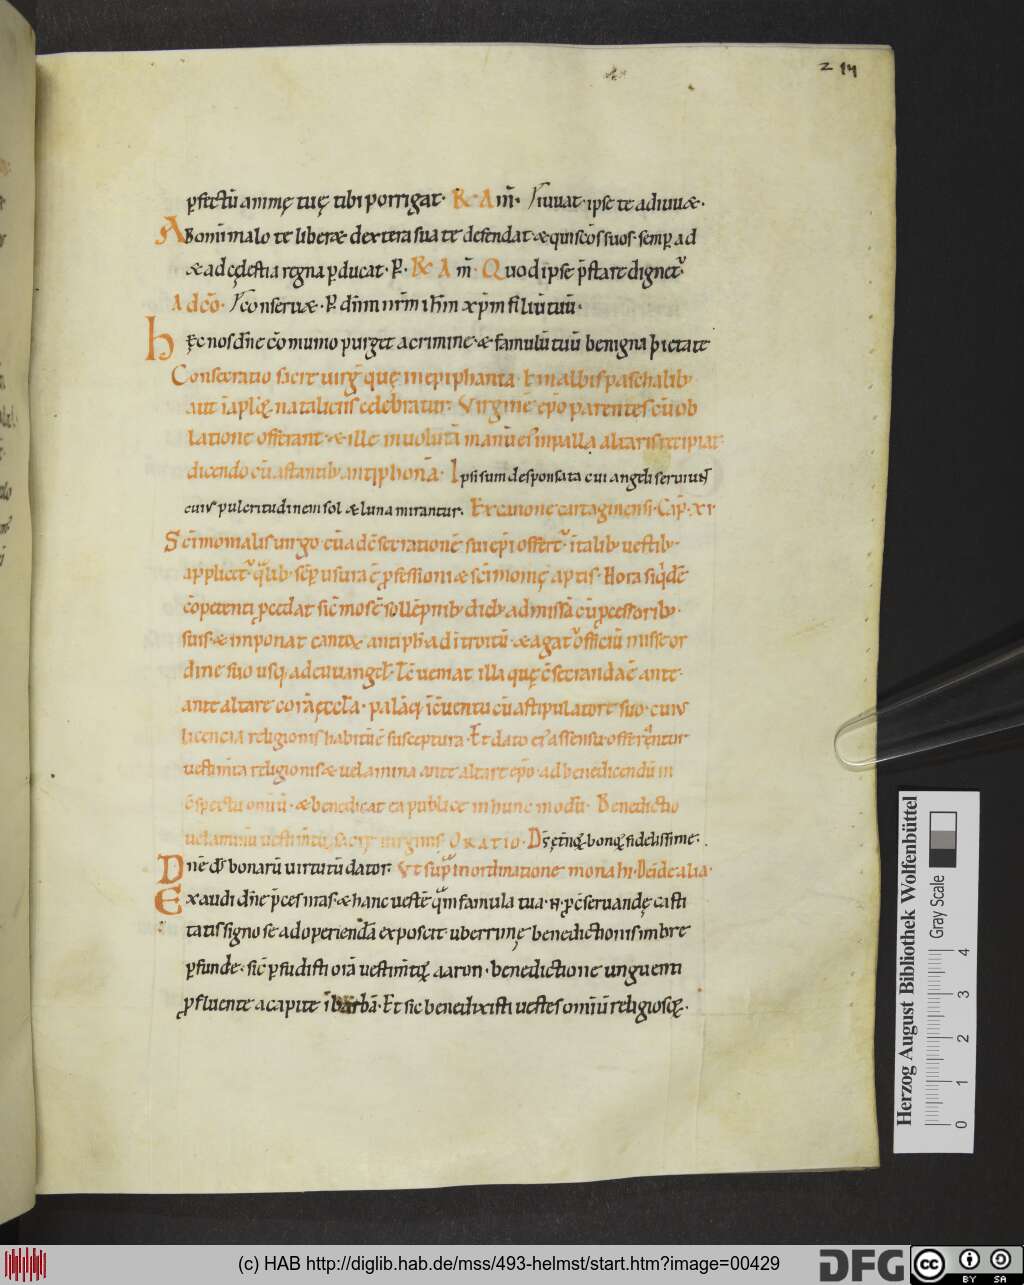 214
ꝑfectū animę tuę tibi porrigat. R. Am̄. Huuat ipse te adiuuæ.
A bom̄i malo te liberæ dextera sua te defendat æqui scōs suos semꝑ ad
æ ad cęlestia regna ꝑducat. ꝑ. R. Am̄. Quod ipse p̄stare dignet᷑
Ad cōo. Hconseruæ. ꝑ dn̄m nr̄m ihm̄ xp̄m filiū tuū.
hęc nos dn̄e cōmunio purget a crimine. æ famulū tuū benigna pietate
Consecratio sacrę uirḡ quę in epiphania. t̄ in albis paschalib᷒
aut ī apl̄oꝝ nataliciis celebratur. Virginē ep̄o parentes cū ob
latione offerant. æ ille inuolutā manū ei in palla altaris recipiat
dicendo cū astantib᷒ antiphonā. Ipsi sum desponsata cui angl̄i seruiūt
cui᷒ pulcritudinem sol æ luna mirantur. Ex canone cartaginensi. Cap̄. XI
Sc̄imonialis uirgo cū ad c̄secrationē sui ep̄i offert᷑ ī talib᷒ uestib᷒
applicet᷑ q̄lib᷒ semꝑ usura ē ꝓfessioni æ sc̄imonię aptis. Hora siq̄dē
cōpetenti ꝓcedat sic̄ mos ē sollēpnib᷒ dieb᷒ admissā cū ꝓcessorib᷒
suis. æ imponat cantor antiph̄ ad introitū. æ agat᷑ officiū missę or
dine suo usq᷒ ad euuangel̄. Tc̄ ueniat illa quę c̄secranda ē ante
ante altare corā ęccl̄a. palāq᷒ īc̄uentu cū astipulatore suo. cui᷒
licencia religionis habitū ē susceptura. Et dato ei᷒ assensu offerantur
uestim̄ta religionis æ uelamina ante altare ep̄o. ad benedicendū in
c̄spectu omiū. æ benedicat ea publice in hunc modū. Benedictio
uelaminū uestim̄toꝝ sacrę uirginis. ORATIO. Ds̄ ęt̄noꝝ bonoꝝ fidelissime.
Dn̄e ds̄ bonarū uirtutū dator. Vt sup̄ in ordinatione monahi. Deīde alia.
Exaudi dn̄e p̄ces nr̄as. æ hanc uestē q̄m famula tua .N. ꝓ c̄seruandę casti
tatis signo se ad operiendā exposcit. uberrimę benedictionis imbre
ꝑfunde. sic̄ ꝑfudisti orā uestim̄toꝝ aaron. benedictione unguenti
ꝓfluente a capite ī barbā. Et sic benedixisti uestes omiū religiosoꝝ.
Herzog August Bibliothek Wolfenbüttel
Gray Scale
0 1 2 3 4
(c) HAB http://diglib.hab.de/mss/493-helmst/start.htm?image=00429
DFG
cc BY SA